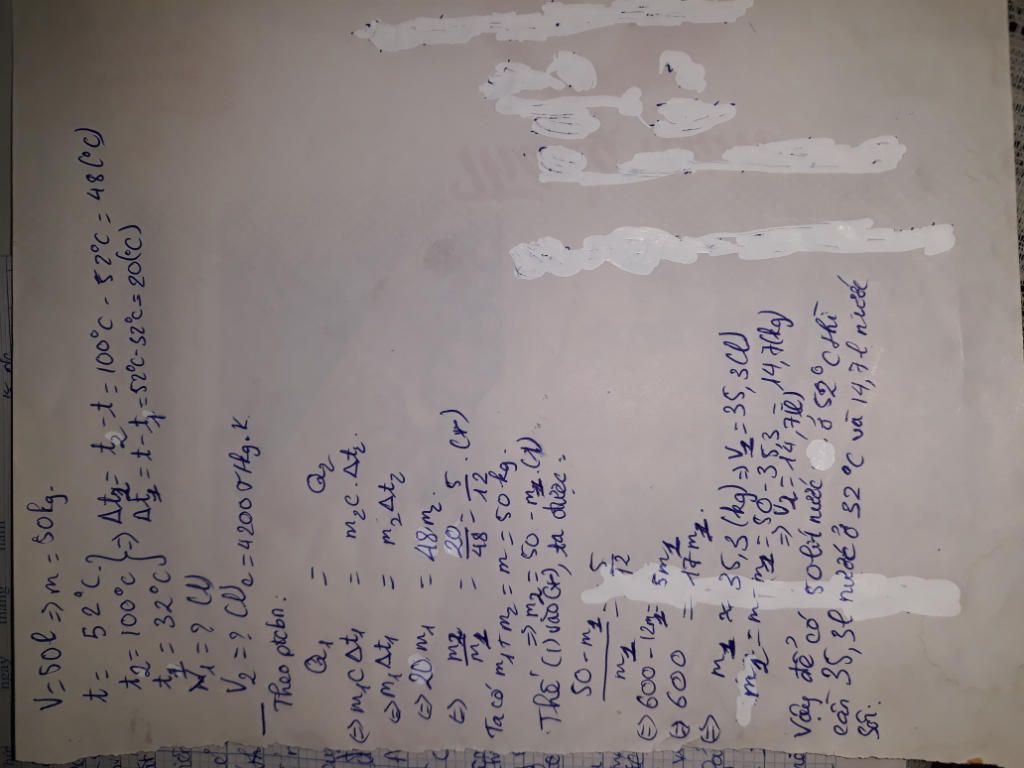 V = 50l => m = 50kg.
t = 52°C.
t2 = 100°C } => Δt2 = t2 - t = 100°C - 52°C = 48(°C)
t1 = 32°C } Δt1 = t - t1 = 52°C - 32°C = 20(°C)
V1 = ? (l)
V2 = ? (l) c = 4200 J/kg.K
Theo ptcbn:
Q1 = Q2
(=) m1c Δt1 = m2c.Δt2.
(=) m1Δt1 = m2Δt2
(=) 20m1 = 48m2.
(=) m2/m1 = 20/48 = 5/12 . (*)
Ta có m1 + m2 = m = 50kg.
=> m2 = 50 - m1 (1)
Thế (1) vào (*), ta được:
50 - m1/m1 = 5/12
(=) 600 - 12m1 = 5m1
(=) 600 = 17m1.
(=) m1 ≈ 35,3 (kg) => V1 = 35,3(l)
m2 = m - m1 = 50 - 35,3 = 14,7(kg)
=> V2 = 14,7(l)
Vậy để có 50 lít nước ở 52°C thì
cần 35,3l nước ở 32°C và 14,7l nước
sôi.